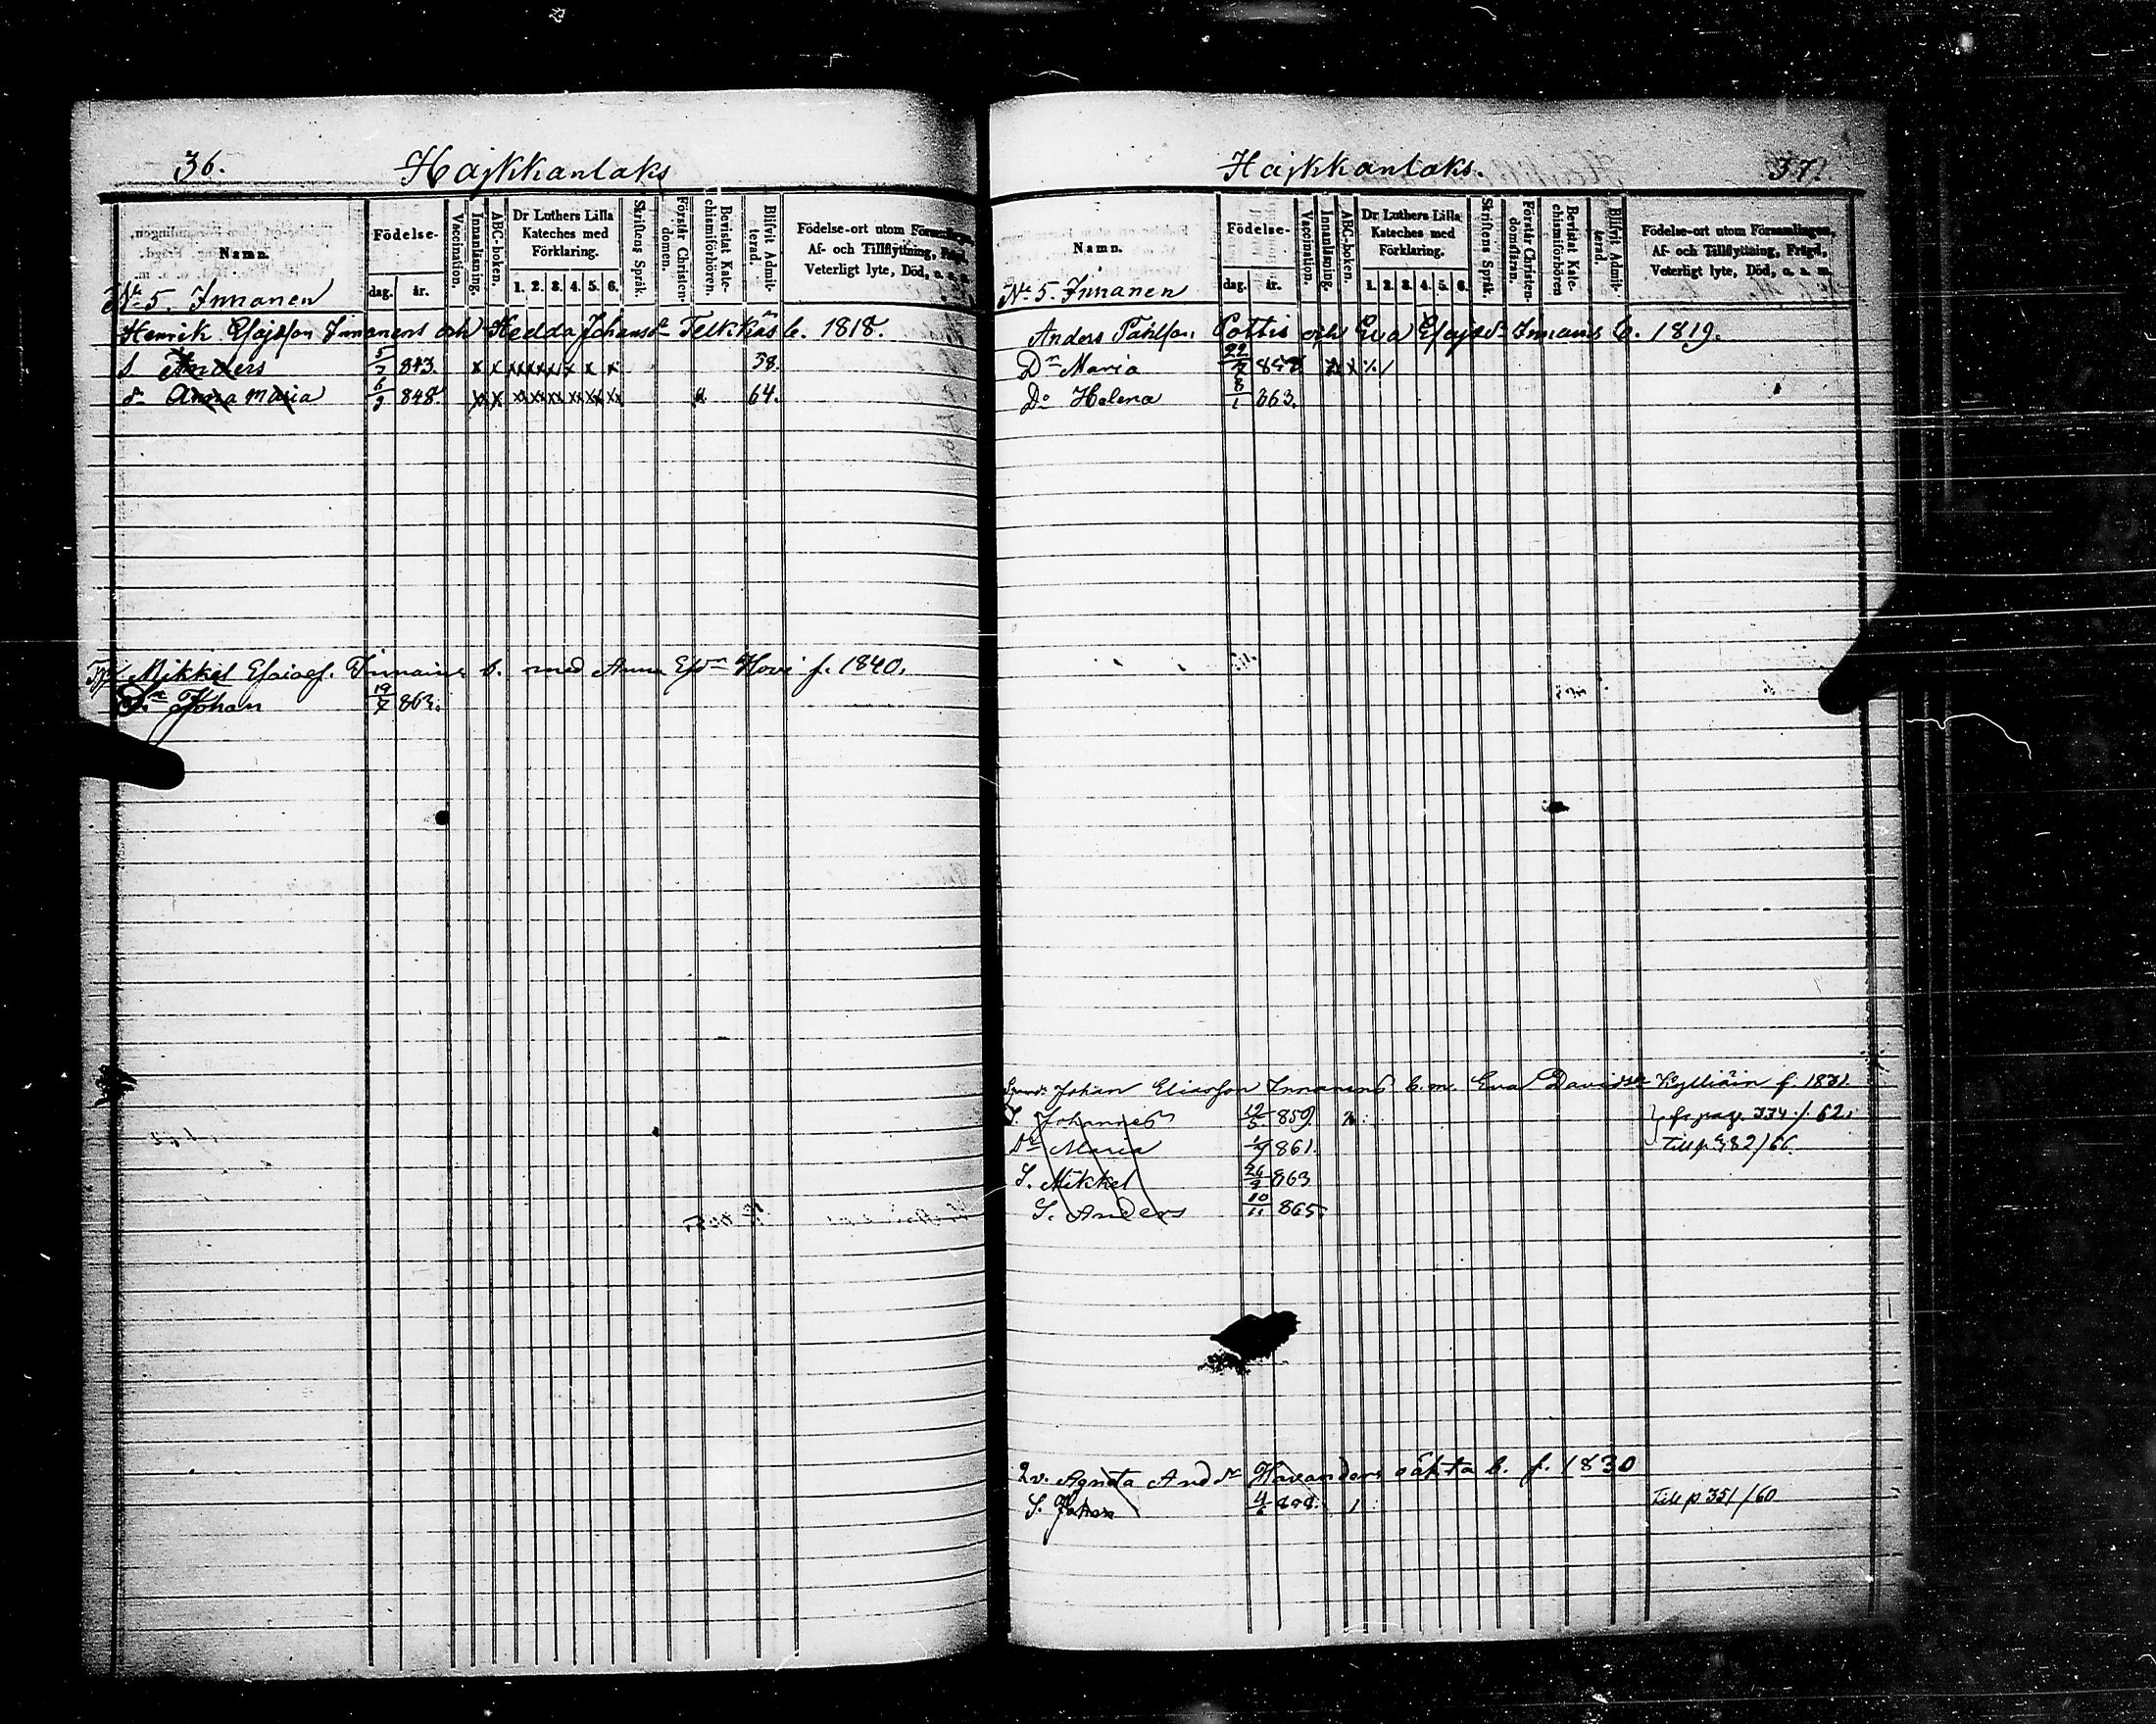 36. Hajkkanlaks
Namn. Födelse- dag. år. Vaccination. Innanläsning. ABC-boken. Dr Luthers Lilla Kateches med Förklaring. 1. 2. 3. 4. 5. 6. Skriftens Språk. Förstår Christen-domen. Bevistat Kate-chismiförhören. Blifvit Admit-terad. Födelse-ort utom Församlingen, Af- och Tillflyttning, Frägd, Veterligt lyte, Död, o. s. m.
No 5. Innanen
Henrik Esajsson Innanens och Hedda Johansdr Telkkäs b. 1818.
S Anders 5/7 843. x x xx xx x x x x 58.
dr Anna Maria 6/9 848. xx x xx xx xx xx xx xx x 64.
Mikkel Esaiasf. Innains b. med Anna Hovi f. 1840.
Sn Johan 19/7 863.
Hajkkanlaks. 37.
Namn. Födelse- dag. år. Vaccination. Innanläsning. ABC-boken. Dr Luthers Lilla Kateches med Förklaring. 1. 2. 3. 4. 5. 6. Skriftens Språk. Förstår Christen-domsläran. Bevistat Kate-chismiförhören Blifvit Admit-terad. Födelse-ort utom Församlingen, Af- och Tillflyttning, Frägd, Veterligt lyte, Död, o. s. m.
No 5. Innanen
Anders Påhlson Pottis och Eva Esajsdr Innains b. 1819.
Dr Maria 22/7 x x
Dr Helena 8/1 863.
Johan Eliasson Innanens b. m. Eva Davidsdr Kylliäin f. 1831.
S. Johannes 12/5 859. x fr pag. 334/62.
Dr Maria 861. till p. 482/66.
S. Mikkel 26/9 863
S. Anders 10/11 865.
Qv. Agneta Anddr oäkta b. f. 1830
S. Johan 4/6 1 till p 351/60